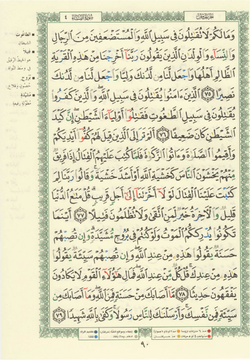 وَمَا لَكُمْ لَا تُقَاتِلُونَ فِي سَبِيلِ اللَّهِ وَالْمُسْتَضْعَفِينَ مِنَ الرِّجَالِ
وَالنِّسَاءِ وَالْوِلْدَانِ الَّذِينَ يَقُولُونَ رَبَّنَا أَخْرِجْنَا مِنْ هَٰذِهِ الْقَرْيَةِ
الظَّالِمِ أَهْلُهَا وَاجْعَل لَّنَا مِن لَّدُنكَ وَلِيًّا وَاجْعَل لَّنَا مِن لَّدُنكَ
نَصِيرًا ٧٥ الَّذِينَ آمَنُوا يُقَاتِلُونَ فِي سَبِيلِ اللَّهِ وَالَّذِينَ كَفَرُوا
يُقَاتِلُونَ فِي سَبِيلِ الطَّاغُوتِ فَقَاتِلُوا أَوْلِيَاءَ الشَّيْطَانِ إِنَّ كَيْدَ
الشَّيْطَانِ كَانَ ضَعِيفًا ٧٦ أَلَمْ تَرَ إِلَى الَّذِينَ قِيلَ لَهُمْ كُفُّوا أَيْدِيَكُمْ
وَأَقِيمُوا الصَّلَاةَ وَآتُوا الزَّكَاةَ فَلَمَّا كُتِبَ عَلَيْهِمُ الْقِتَالُ إِذَا فَرِيقٌ
مِّنْهُمْ يَخْشَوْنَ النَّاسَ كَخَشْيَةِ اللَّهِ أَوْ أَشَدَّ خَشْيَةً وَقَالُوا رَبَّنَا لِمَ
كَتَبْتَ عَلَيْنَا الْقِتَالَ لَوْلَا أَخَّرْتَنَا إِلَىٰ أَجَلٍ قَرِيبٍ قُلْ مَتَاعُ الدُّنْيَا
قَلِيلٌ وَالْآخِرَةُ خَيْرٌ لِّمَنِ اتَّقَىٰ وَلَا تُظْلَمُونَ فَتِيلًا ٧٧ أَيْنَمَا
تَكُونُوا يُدْرِككُّمُ الْمَوْتُ وَلَوْ كُنتُمْ فِي بُرُوجٍ مُّشَيَّدَةٍ وَإِن تُصِبْهُمْ
حَسَنَةٌ يَقُولُوا هَٰذِهِ مِنْ عِندِ اللَّهِ وَإِن تُصِبْهُمْ سَيِّئَةٌ يَقُولُوا
هَٰذِهِ مِنْ عِندِكَ قُلْ كُلٌّ مِّنْ عِندِ اللَّهِ فَمَالِ هَٰؤُلَاءِ الْقَوْمِ لَا يَكَادُونَ
يَفْقَهُونَ حَدِيثًا ٧٨ مَّا أَصَابَكَ مِنْ حَسَنَةٍ فَمِنَ اللَّهِ وَمَا أَصَابَكَ مِن
سَيِّئَةٍ فَمِن نَّفْسِكَ وَأَرْسَلْنَاكَ لِلنَّاسِ رَسُولًا وَكَفَىٰ بِاللَّهِ شَهِيدًا ٧٩
٩٠